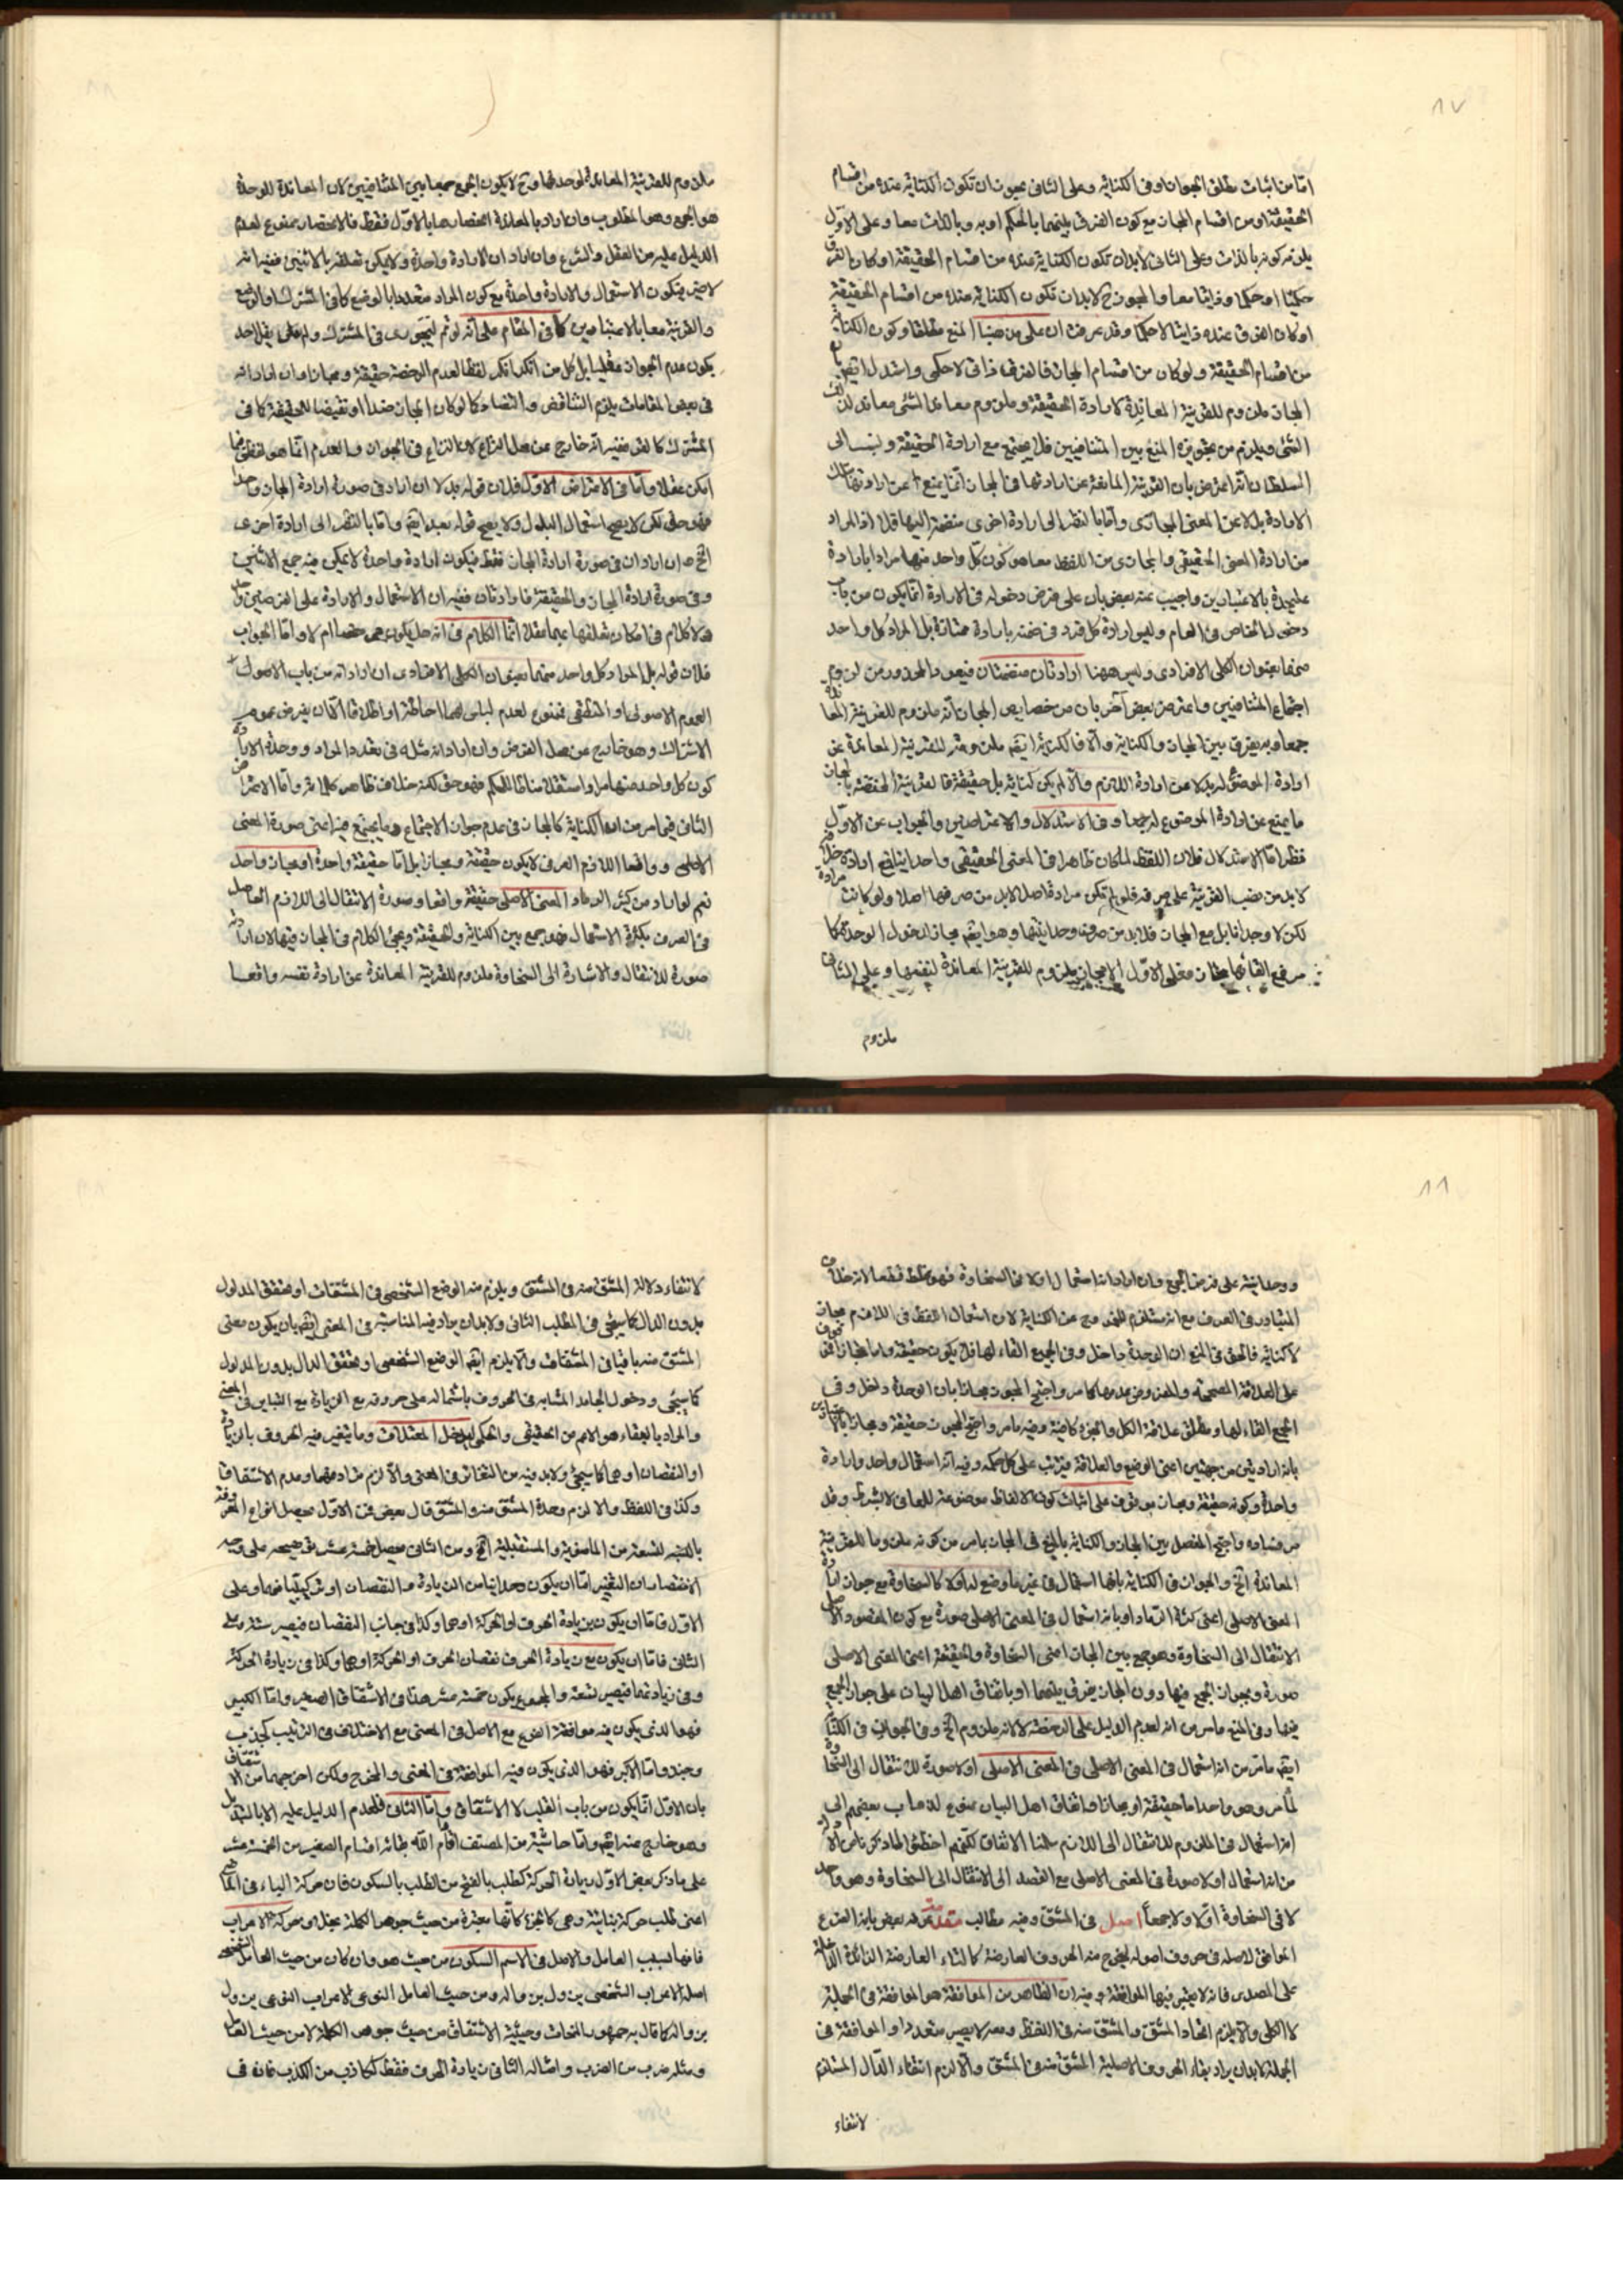 ٨٧
امّا من اثبات مطلق الجواز او فى الكناية وعلى الثانى يجوز ان تكون الكناية عنده من اقسام
الحقيقة او من اقسام المجاز مع كون الفرق بينهما بالحكم او به وبالذات معا وعلى الاوّل
يلزم كونه بالذات وعلى الثانى لابد ان تكون الكناية عنده من اقسام الحقيقة او كان الفرق
حكميا او حكما وذاتيا معا والمجوز ح لابد ان تكون الكناية عنده من اقسام الحقيقة
او كان الفرق عنده ذاتيا لا حكما وقد عرفت ان على مذهبنا المنع مطلقا وكون الكناية
من اقسام الحقيقة ولو كان من اقسام المجاز فالفرق ذاتى لا حكمى واستدل
المجاز ملزوم للقرينة المعاندة لارادة الحقيقة وملزوم معاند الشئ معاند لذلك
الشئ ويلزم من تجويزه الجمع بين المتنافيين فلا يجتمع مع ارادة الحقيقة ونسب الى
السلطان انه اعترض بان القرينة المانعة عن ارادتها فى المجاز انما يمنع عن ارادتها بتلك
الارادة بدلا عن المعنى المجازى وامّا بالنظر الى ارادة اخرى منضمة اليها فلا اذ المراد
من ارادة المعنى الحقيقى والمجازى من اللفظ معا هو كون كل واحد منهما مرادا بارادة
عليحدة بالاعتبارين واجيب عنه بعض بان على فرض دخوله فى الارادة انما يكون من باب
دخول الخاص فى العام وليس ارادة كل فرد فى ضمنه بارادة ممتازة بل المراد كل واحد
منهما بعنوان الكلى الافرادى وليس ههنا ارادتان منضمتان فيعود المحذور من لزوم
اجتماع المتنافيين واعترض بعض آخر بان من خصايص المجاز انه ملزوم للقرينة المعاندة
جمعا وبه يفرق بين المجاز والكناية والّا فالكناية ايضا ملزومة للقرينة المعاندة عن
ارادة الموضوع له بدلا عن ارادة اللازم والّا لم يكن كناية بل حقيقة فالقرينة المختصة بالمجاز
ما يمنع عن ارادة الموضوع له جمعا وفى الاستدلال والاعتراضين والجواب عن الاوّل
نظر امّا الاستدلال فلان اللفظ لما كان ظاهرا فى المعنى الحقيقى واحدا
لابد من نصب القرينة على صرفه فلو لم تكن مرادة اصلا لابد من صرفها اصلا ولو كانت مرادة
لكن لا وحدانا بل مع المجاز فلابد من صرف وحدانيتها وهو ايضا مجاز لدخول الوحدة
مع القائها مجاز فعلى الاوّل المجاز ملزوم للقرينة المعاندة لنفسها وعلى الثانى
ملزوم
ملزوم للقرينة المعاندة لوحدتها وح لا يكون الجمع جمعا بين المتنافيين لان المعاندة للوحدة
هو الجمع وهو المطلوب وان اراد بالمعاندة انحصارها بالاوّل فقط فالانحصار ممنوع لعدم
الدليل عليه من العقل والشرع وان اراد ان الارادة واحدة ولا يمكن تعلقه بالاثنين ففيه انه
لا ضير بكون الاستعمال والارادة واحدة مع كون المراد متعددا بالوضع كما فى المشترك او الوضع
والقرينة معا بالاعتبارين كما فى المقام على انه لو تم ليجرى فى المشترك ولم يقل احد
بكون عدم الجواز عقليا بل كل من انكر انكر لفظا لعدم الرخصة حقيقة ومجازا وان اراد انه
فى بعض المقامات يلزم التناقض والتضاد كما لو كان المجاز ضدا او نقيضا للحقيقة كما فى
المشترك كالقرء ففيه انه خارج عن محل النزاع لان النزاع فى الجواز والعدم انما هو لفظى فيما
امكن عقلا وامّا فى الاعتراض الاوّل فلان قوله بدلا ان اراد فى صورة ارادة المجاز واحدا
فهو حق لكن لا يصح استعمال البدل ولا يصح قوله بعد ايضا وامّا بالنظر الى ارادة اخرى
الخ وان اراد ان فى صورة ارادة المجاز فقط فيكون ارادة واحدة لا يمكن فيه جمع الاثنين
وفى صورة ارادة المجاز والحقيقة فارادتان ففيه ان الاستعمال والارادة على الفرضين واحد
ولا كلام فى امكان تعلقها عليهما عقلا انما الكلام فى انه هل يكون مرخصا ام لا وامّا الجواب
فلان قوله بل المراد كل واحد منهما بعنوان الكلى الافرادى ان اراد انه من باب الاصول
العموم الاصولى او المنطقى فممنوع لعدم لباس لهما احاطة او اطلاقا الا ان يفرض بعموم
الاشتراك وهو خارج عن محل الفرض وان اراد انه مثله فى تعدد المراد ووحدة الارادة
كون كل واحد منهما مرادا مستقلا مناطا للحكم فهو حق لكنه خلاف ظاهر كلامه وامّا الاعتراض
الثانى فيما مر من ان الكناية كالمجاز فى عدم جواز الاجتماع وما يجتمع فيه اعنى صورة المعنى
الاصلى وواقعا اللازم العرفى لا يكون حقيقة ومجازا بل امّا حقيقة واحدة او مجاز واحد
نعم لو اراد من كثير الرماد المعنى الاصلى حقيقة واقعا وصورة الانتقال الى اللازم الحاصل
فى العرف بكثرة الاستعمال فهو جمع بين الكناية والحقيقة ويجئ الكلام فى المجاز فيها لان ارادة
صورة للانتقال والاشارة الى السخاوة ملزوم للقرينة المعاندة عن ارادة نفسه واقعا
٨٨
ووحدانية على فرض الجمع وان اراد انه استعمال اولا فى السخاوة فهو غلط قطعا لانه خلاف
المتبادر فى العرف مع انه مستلزم للخروج عن الكناية لان استعمال اللفظ فى اللازم مجاز
لا كناية فالحق فى المنع ان الوحدة داخل وفى الجميع القاء لها فلا يكون حقيقة وامّا مجازا فموقوف
على العلاقة المصححة والمفروض عدمها كما مر واحتج المجوز مجازا بان الوحدة داخل وفى
الجمع القاء لها ومطلق علاقة الكل والجزء كافية وفيه ما مر واحتج المجوز حقيقة ومجازا بالاعتبارين
بانه ارادتين من جهتين اعنى الوضع والعلاقة فيترتب على كل حكمه وفيه انه استعمال واحد وارادة
واحدة وكونه حقيقة ومجاز موقوف على اثبات كون الالفاظ موضوعة للمعانى لا بشرط وقد
مر فساده واحتج المفصل بين المجاز والكناية بالمنع فى المجاز بما مر من كونه ملزوما للقرينة
المعاندة الخ والجواز فى الكناية بانها استعمال فى غير ما وضع له اولا كالسخاوة مع جواز ارادة
المعنى الاصلى اعنى كثرة الرماد او بانه استعمال فى المعنى الاصلى صورة مع كون المقصود الاصلى
الانتقال الى السخاوة وهو جمع بين المجاز اعنى السخاوة والحقيقة اعنى المعنى الاصلى
صورة وبجواز الجمع فيها دون المجاز يفرق بينهما او باتفاق اهل البيان على جواز الجمع
فيها وفى المنع ما مر من انه لعدم الدليل على الرخصة لا لانه ملزوم الخ وفى الجواز فى الكناية
ايضا ما مر من انه استعمال فى المعنى الاصلى فى المعنى الاصلى اولا صورة للانتقال الى السخاوة
لما مر وهو واحد اما حقيقة او مجازا واتفاق اهل البيان ممنوع لذهاب بعضهم الى
انه استعمال فى الملزوم للانتقال الى اللازم سلمنا الاتفاق لكنهم اخطئوا لما ذكرنا من الارادة
من انه استعمال اولا صورة فى المعنى الاصلى مع القصد الى الانتقال الى السخاوة وهو واحد
لا فى السخاوة اوّلا ولا جمعا اصل فى المشتق وفيه مطالب مقدمة عرفه بعض بانه الفرع
الموافق لاصله فى حروف اصوله ليخرج منه الحروف العارضة كالتاء العارضة الزائدة الداخلة
على المصدر فانه لا يعتبر فيها الموافقة وفيه ان الظاهر من الموافقة هو الموافقة فى الجملة
لا الكلى والّا يلزم اتحاد المشتق والمشتق منه فى اللفظ ومعه لا يصير متعددا والموافقة فى
الجملة لابد ان يراد بقاء الحروف الاصلية المشتق منه فى المشتق والّا لزم انتفاء الدّال المستلزم
لانتفاء
لانتفاء دلالة المشتق منه فى المشتق ويلزم منه الوضع الشخصى فى المشتقات او تحقق المدلول
بدون الدال كما سيجئ فى المطلب الثانى ولابد ان يراد فيه المناسبة فى المعنى ايضا بان يكون معنى
المشتق منه باقيا فى المشتقات والّا يلزم ايضا الوضع الشخصى او تحقق الدال بدون المدلول
كما سيجئ ودخول الجامد المشابه فى الحروف باشتماله على حروفه مع الزيادة مع التباين فى المعنى
والمراد بالبقاء هو الاعم من الحقيقى والحكمى ليدخل المعتلات وما يتغير فيه الحروف بالزيادة
او النقصان او هما كما سيجئ ولابد فيه من التغاير فى المعنى والّا لزم ترادفهما وعدم الاشتقاق
وكذا فى اللفظ والا لزم وحدة المشتق منه والمشتق قال بعض فمن الاوّل يحصل انواع الحروف
بالنسبة لتسعة من الماضوية والمستقبلية الخ ومن الثانى يحصل خمسة عشر
الاقتضاء ان التغير امّا ان يكون وحدانيا من الزيادة والنقصان او تركيبيا فيهما وعلى
الاوّل فامّا ان يكون بزيادة الحرف او الحركة او هما وكذا فى جانب النقصان فيصير ستة وعلى
الثانى فامّا ان يكون مع زيادة الحرف نقصان الحرف او الحركة او هما وكذا فى زيادة الحركة
وفى زيادتهما فيصير تسعة والمجموع يكون خمسة عشر هذا فى الاشتقاق الصغير وامّا الكبير
فهو الذى يكون فيه موافقة الفرع مع الاصل فى المعنى مع الاختلاف فى الترتيب كجذب
وجبذ وامّا الاكبر فهو الذى يكون فيه الموافقة فى المعنى والمخرج ولكن اخرجهما من الاشتقاق
بان الاوّل انما يكون من باب القلب لا الاشتقاق وامّا الثانى فلعدم الدليل عليه الا بالتبديل
وهو خارج عنه ايضا وامّا حاشية من المصنف اقام الله بقائه اقسام الصغير من الخمسة عشر
على ما ذكر بعض الاوّل زيادة الحركة كطلب بالفتح من الطلب بالسكون فان حركة الباء فى الماضى
اعنى طلب حركة بنائية وهى كالجزء كانها معتبرة من حيث جوهر الكلمة بخلاف حركة الاعراب
فانها لسبب العامل والاصل فى الاسم السكون من حيث هو وان كان من حيث العامل الشخصى
اصله الاعراب الشخصى يزول بزواله ومن حيث العامل النوعى الاعراب النوعى يزول
بزواله كما قال به جمهور النحات وحيثية الاشتقاق من حيث جوهر الكلمة لا من حيث العامل
ومثله ضرب من الضرب وامثاله الثانى زيادة الحرف فقط ككاذب من الكذب فانه فى